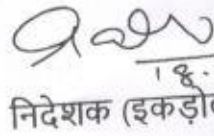 18.
निदेशक (इकड़ो